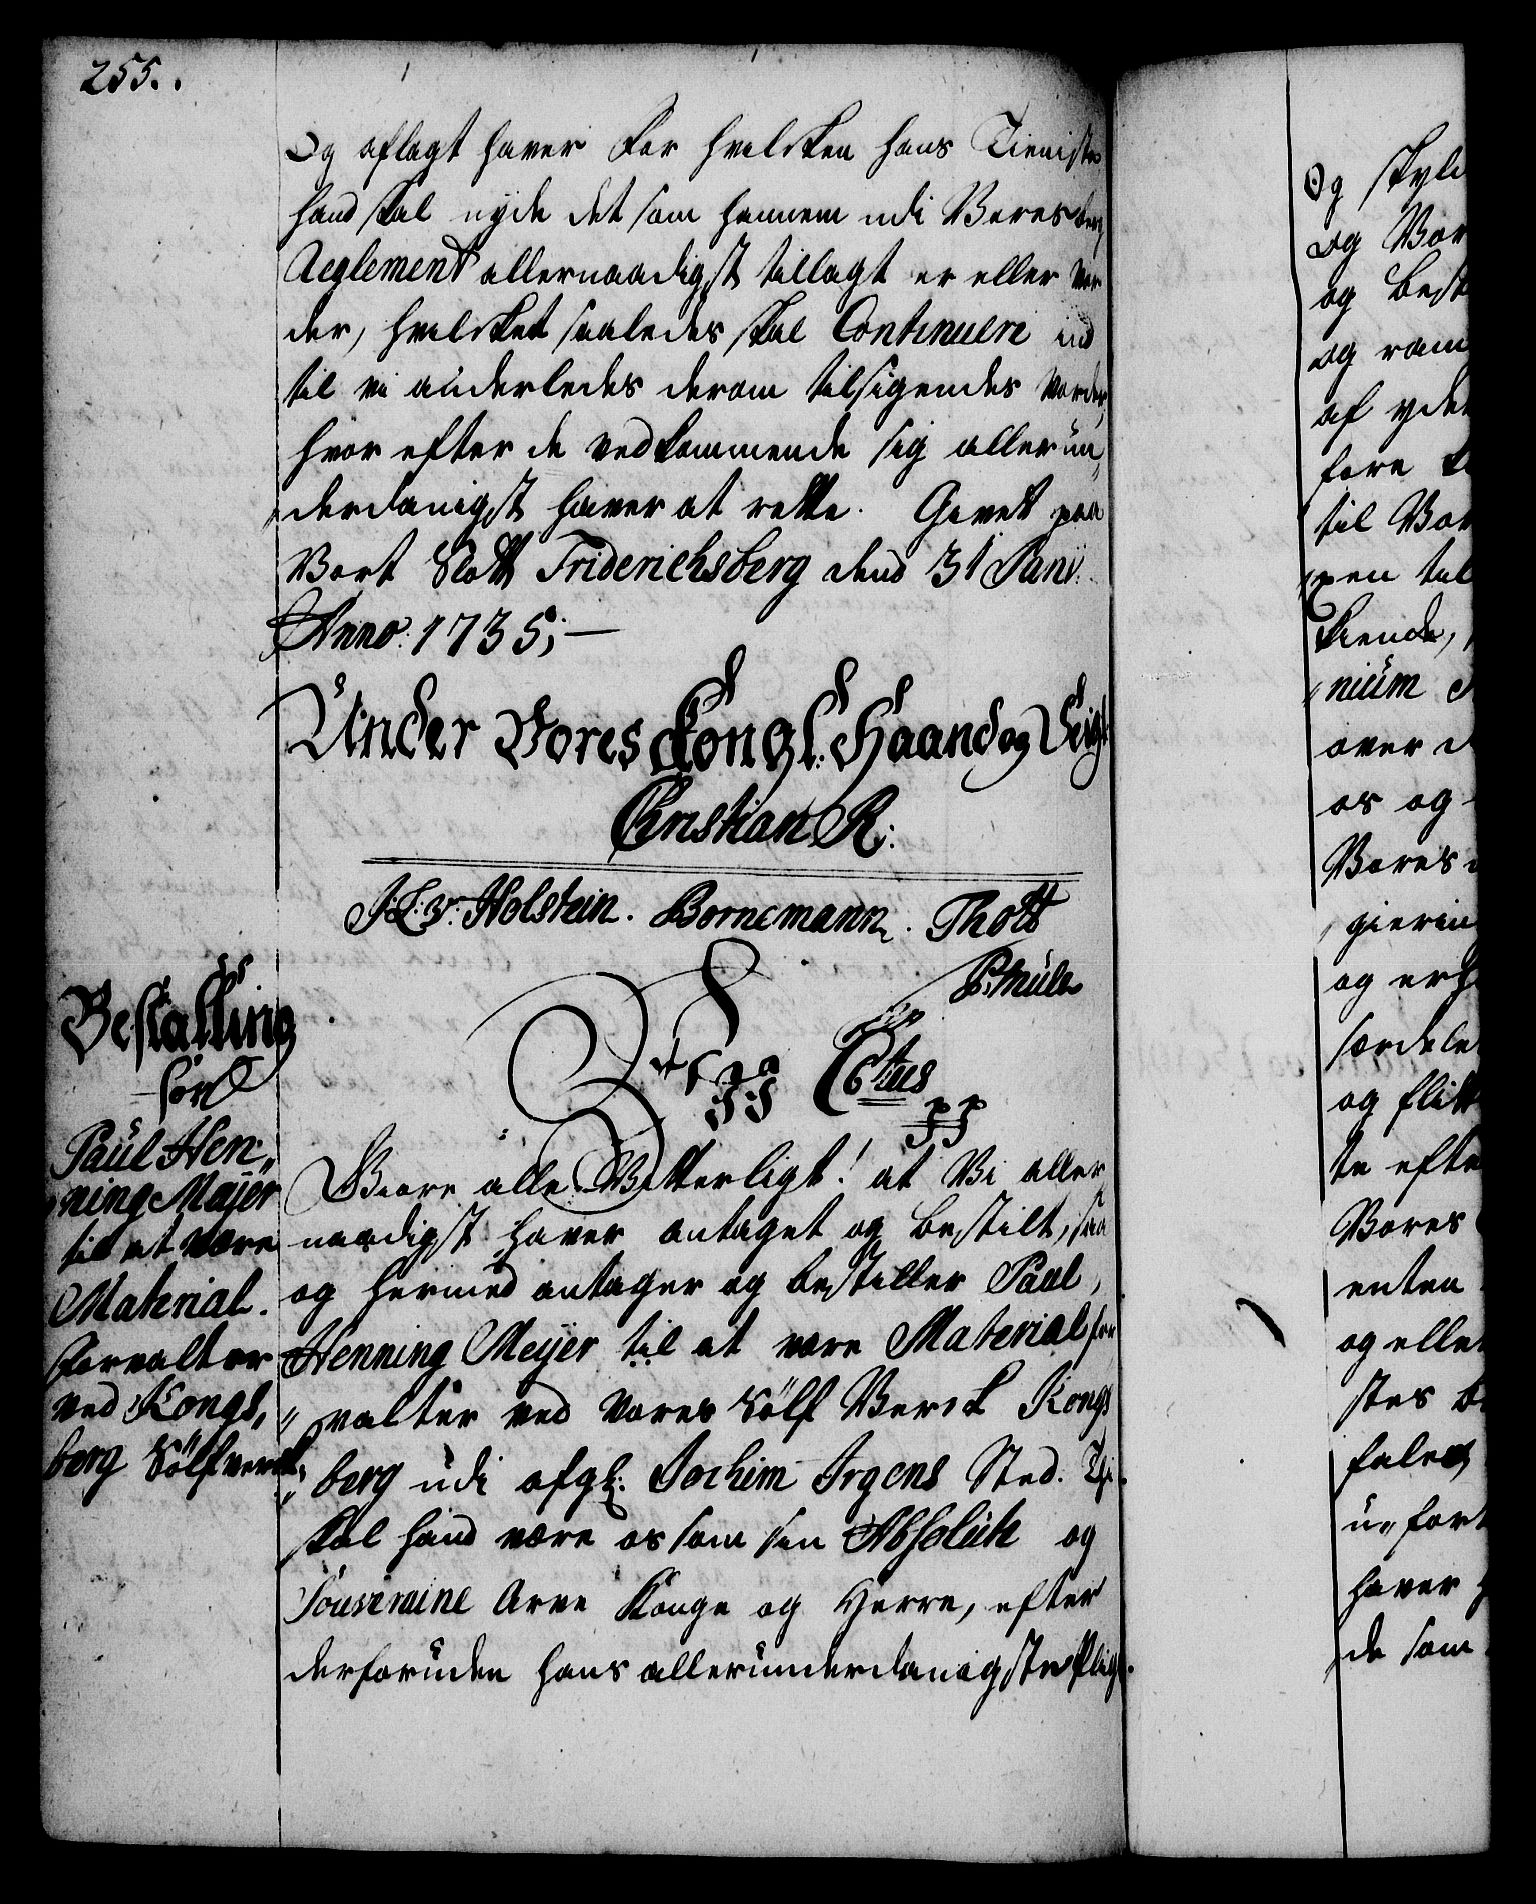 255.
Og aflagt haver For hvilken hans Tieniste
hand skal nyde det som hannem udi Vores berg
Reglement allernaadigst tillagt er eller vor
der, hvilcket saaledes skal Continuere ind
til vi anderledes derom tilsigendes Vorder,
hvor efter de vedkommende sig allerun,
derdanigst haver at rette. Givet paa
Vort Slott Friderichsberg dend 31 Janv:
Anno. 1735;—
Under Vores Kongl. Haand og Seigl
Christian R:
J: L: v: Holstein. Bornemann. Thott
P. Müller
Bestalling
for
Paul Hen,
ning Majer
til at være
Material.
Forvalter
ved Kongs,
berg Sölfverck,
Christian 6tus
pp
Giøre alle Vitterligt! at Vi aller
naadigst haver antaget og bestilt, saa
og hermed antager og bestiller Paul,
Henning Meyer til at være Material for
„valter ved Vores Sölf Verck Kongs
„berg udi afgl: Jochim Irgens Sted. Thi
skal hand være os som sin Absolute og
Souveraine Arve Konge og Herre, efter
derforuden hans allerunderdanigste Pligt
Og skyl
og Vor
og best
og ram
af yde
fare
til Vor
„pen til
kiende,
„nium
over
os og
Vores
gierin
og erh
særdele
og flitt
te efte
Vores
enten
og elle
stes b
fales
u„fort
haver
de som